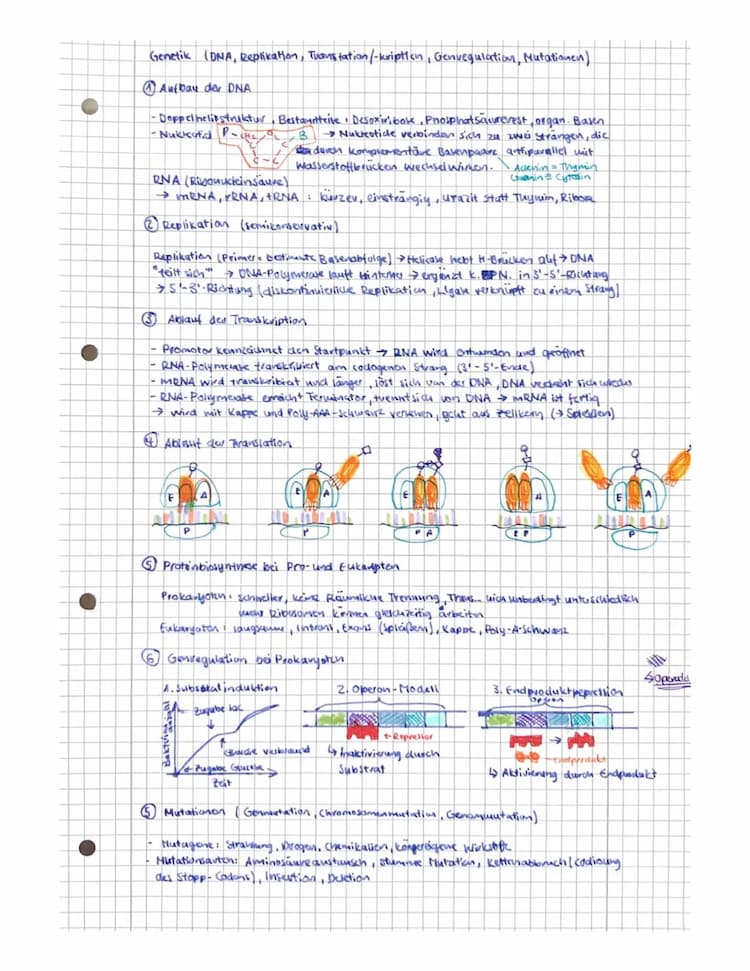 Genetik (DNA, Replikation, Translation/-kription, Genregulation, Mutationen)
① Aufbau der DNA
- Doppelhelixstruktur, Bestandteile: Desoxiribose, Phosphatsäurerest, organ. Basen
- Nukleotid P CH₂ O C C C C B → Nukleotide verbinden sich zu zwei Strängen, die
durch komplementäre Basenpaare antiparallel mit
Wasserstoffbrücken wechselwirken. Adenin = Thymin
Guanin ≡ Cytosin
RNA (Ribonukleinsäure)
→ mRNA, rRNA, tRNA: kürzer, einsträngig, Urazil statt Thymin, Ribose
② Replikation (semikonservativ)
Replikation (Primer = bestimmte Basenabfolge) → Helicase hebt H-Brücken auf → DNA
"teilt sich" → DNA-Polymerase läuft hinterher → ergänzt k. N. in 3'-5'-Richtung
→ 5'-3'-Richtung (diskontinuierliche Replikation, Ligase verknüpft zu einem Strang)
③ Ablauf der Transkription
- Promotor kennzeichnet den Startpunkt → RNA wird entwunden und geöffnet
- RNA-Polymerase transkribiert am codogenen Strang (3'-5'-Ende)
- mRNA wird transkribiert und länger, löst sich von der DNA, DNA verdreht sich wieder
- RNA-Polymerase erreicht Terminator, trennt sich von DNA → mRNA ist fertig
→ wird mit Kappe und Poly-AAA-Schwanz versehen, geht aus Zellkern (→ Spleißen)
④ Ablauf der Translation
E A P
E A P
E P A
A E P
E A P
⑤ Proteinbiosynthese bei Pro- und Eukaryoten
Prokaryoten: schneller, keine Räumliche Trennung, Trans... nich unbedingt unterschiedlich
mehr Ribosomen können gleichzeitig arbeiten
Eukaryoten: langsamer, Introns, Exons (Spleißen), Kappe, Poly-A-Schwanz
⑥ Genregulation bei Prokaryoten
↳ Operator
1. Substratinduktion 2. Operon-Modell 3. Endproduktrepression
Operon
Bakterienanzahl
Zugabe lac.
Glucose verbraucht
Zugabe Glucose
Zeit
← Repressor
↳ Inaktivierung durch
Substrat
→
- Endprodukt
↳ Aktivierung durch Endprodukt
⑤ Mutationen (Genmutation, Chromosomenmutation, Genommutation)
- Mutagene: Strahlung, Drogen, Chemikalien, körpereigene Wirkstoffe
- Mutationsarten: Aminosäureaustausch, stumme Mutation, Kettenabbruch (Codierung
des Stopp-Codons), Insertion, Deletion